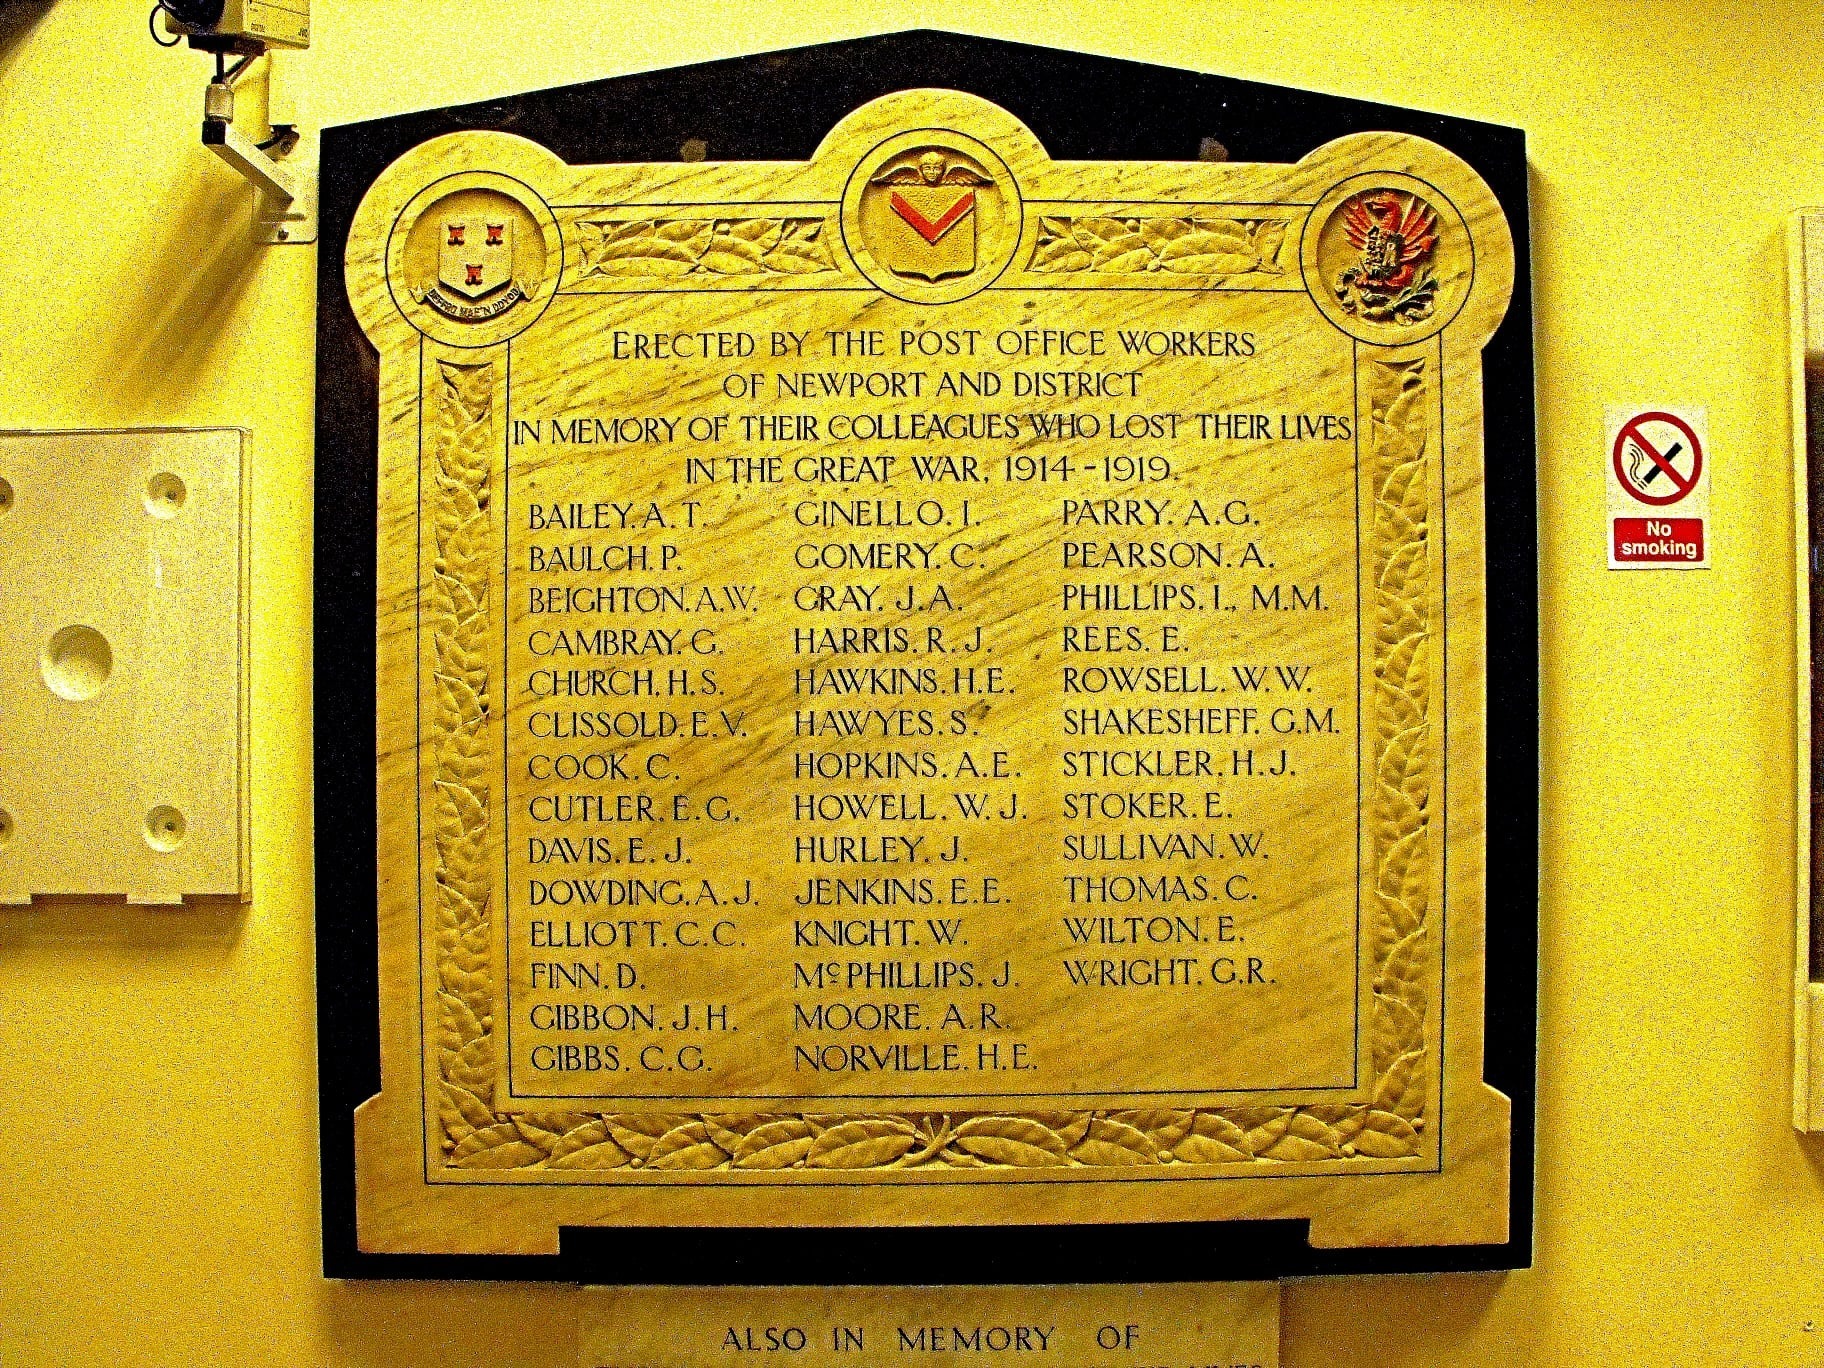 ERECTED BY THE POST OFFICE WORKERS
OF NEWPORT AND DISTRICT
IN MEMORY OF THEIR COLLEAGUES WHO LOST THEIR LIVES
IN THE GREAT WAR, 1914-1919.
BAILEY. A. T.
BAULCH. P.
BEIGHTON. A.W.
CAMBRAY. G.
CHURCH. H. S.
CLISSOLD. E.V.
COOK. C.
CUTLER. E. G.
DAVIS. E. J.
DOWDING. A. J.
ELLIOTT. C. C.
FINN. D.
GIBBON. J. H.
GIBBS. C. G.
GINELLO. I.
GOMERY. C.
GRAY. J. A.
HARRIS. R. J.
HAWKINS. H. E.
HAWYES. S.
HOPKINS. A. E.
HOWELL. W. J.
HURLEY. J.
JENKINS. E. E.
KNIGHT. W.
McPHILLIPS. J.
MOORE. A. R.
NORVILLE. H. E.
PARRY. A. G.
PEARSON. A.
PHILLIPS. I., M.M.
REES. E.
ROWSELL. W. W.
SHAKESHEFF. G. M.
STICKLER. H. J.
STOKER. E.
SULLIVAN. W.
THOMAS. C.
WILTON. E.
WRIGHT. G. R.
ALSO IN MEMORY OF
No
smoking
JVC